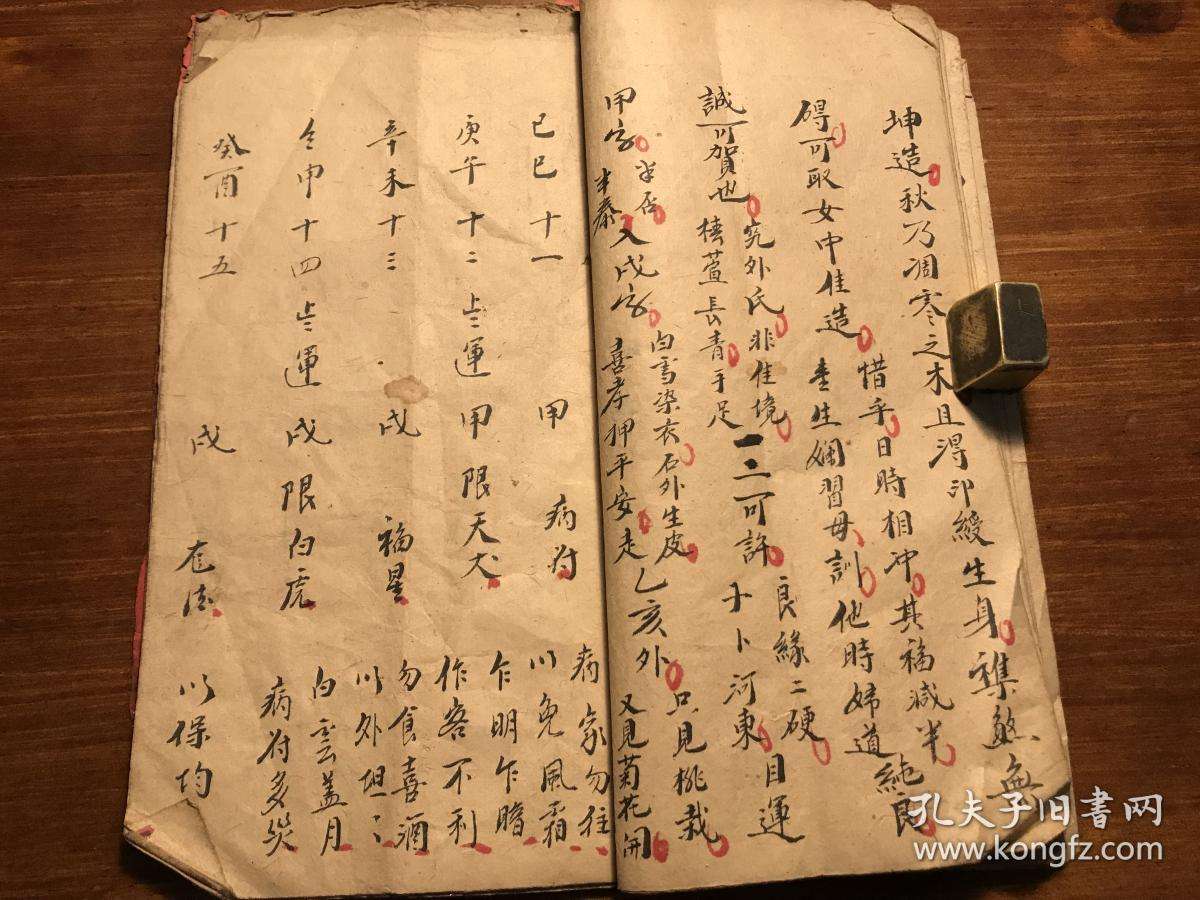 坤造秋乃凋零之木且淂印綬生身襍煞無
碍可取女中佳造
惜乎日時相冲其福減半
生嫻習母訓他時婦道純良
誠可賀也
究外氏非佳境
椿萱長青手足
一二可許
良緣二硬
卜河東
目運
甲字
半否
半泰
入戌字
白雪染衣石外生皮
喜孝押平安走乙亥外
只見桃栽
又見菊花開
己巳十一 甲 病符
病家勿往
以免風霜
庚午十二 運甲限天犬
乍明乍暗
作客不利
辛未十三 戌 福星
勿食喜酒
以外坦〻
壬申十四 運戌限白虎
白雲盖月
病符多災
癸酉十五 戌
以保均
孔夫子旧书网
www.kongfz.com